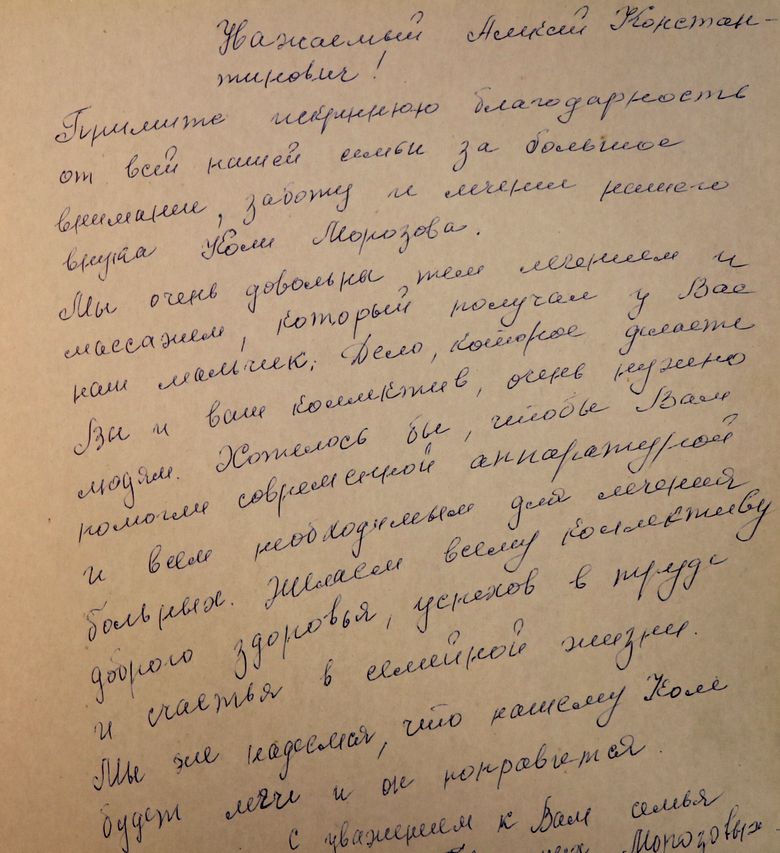 Уважаемый Алексей Констан-
тинович!
Примите искреннюю благодарность
от всей нашей семьи за большое
внимание, заботу и лечение нашего
внука Коли Морозова.
Мы очень довольны тем лечением и
массажем, который получал у Вас
наш мальчик. Дело, которое делаете
Вы и ваш коллектив, очень нужно
людям. Хотелось бы, чтобы Вам
помогли современной аппаратурой
и всем необходимым для лечения
больных. Желаем всему коллективу
доброго здоровья, успехов в труде
и счастья в семейной жизни.
Мы же надеемся, что нашему Коле
будет легче и он поправится.
с уважением к Вам семья
Морозовых